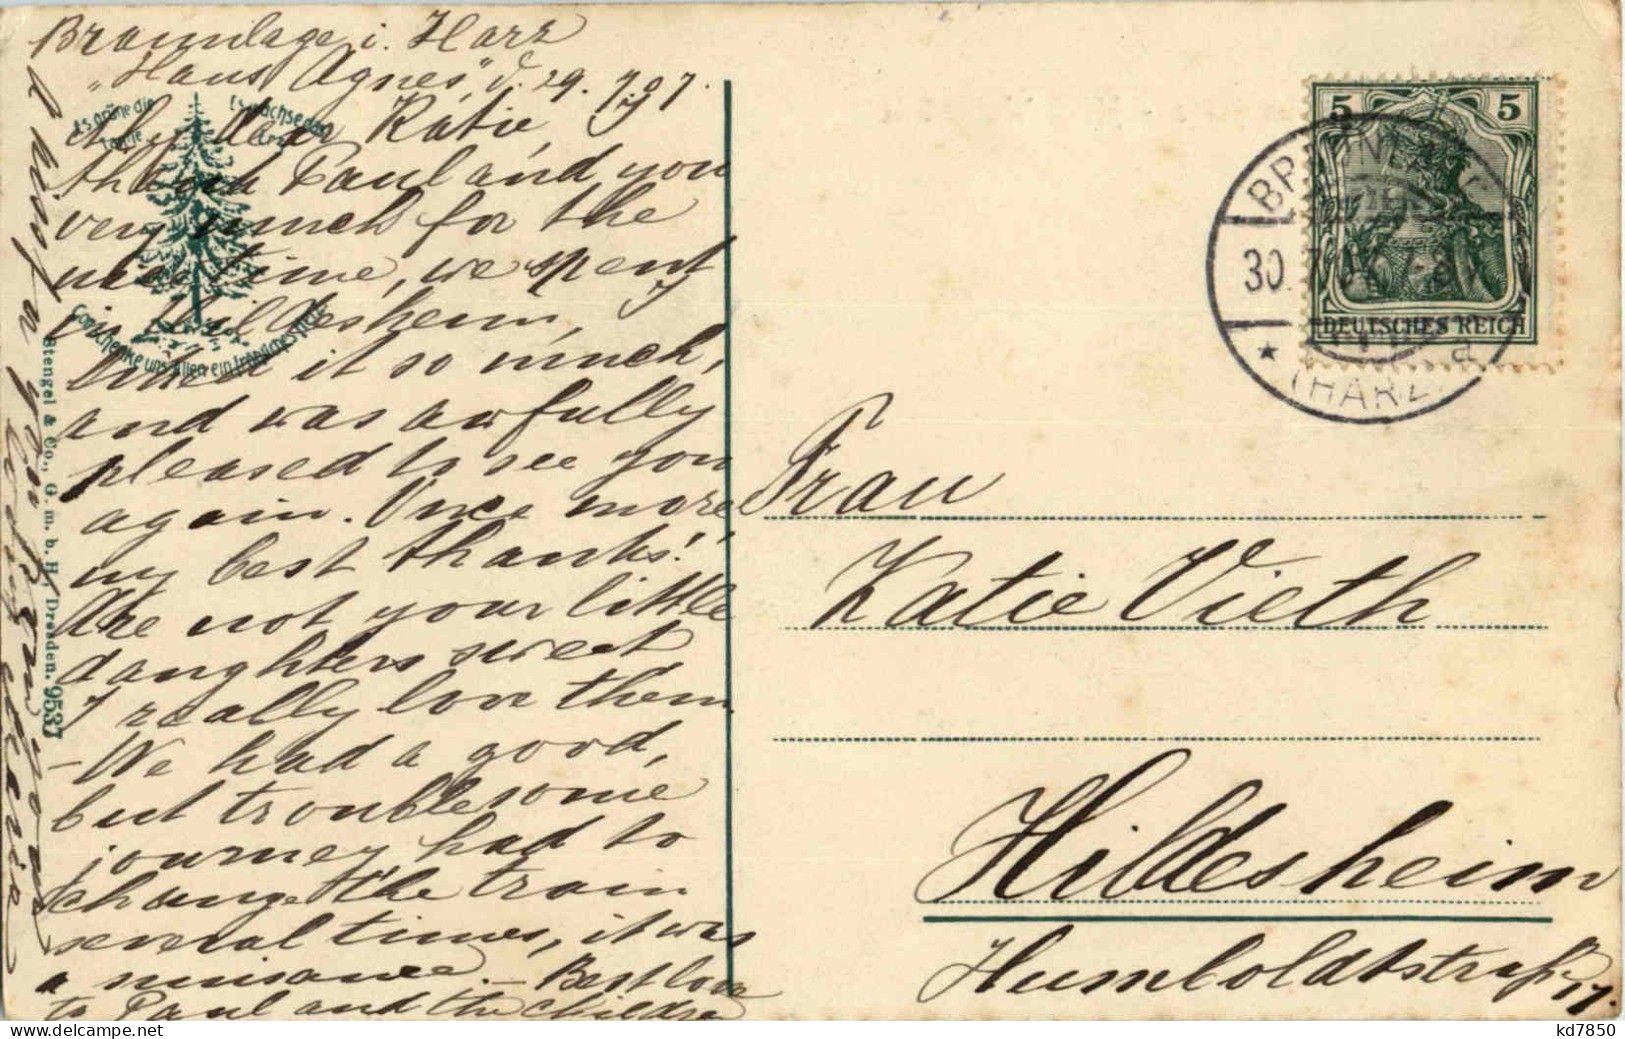 Braunlage i. Harz
"Haus Agnes", d. 29. 7. 07.
My dear Katie,
thank Paul and you
very much for the
nice time, we spent
in Hildesheim,
liked it so much,
and was awfully
pleased to see you
again. Once more
my best thanks!
Are not your little
daughters sweet
I really love them
– We had a good,
but troublesome
journey had to
change the train
several times, it was
a nuisance. – Best love
to Paul and the children
Es grüne die
Tanne
Es wachse das
Erz
Gott schenke uns allen ein fröhliches Herz
Stengel & Co., G. m. b. H., Dresden. 9537
5 5
DEUTSCHES REICH
BRAUNLAGE
30.
* (HARZ) a
Frau
Katie Vieth
Hildesheim
Humboldtstraße 17.
kd7850